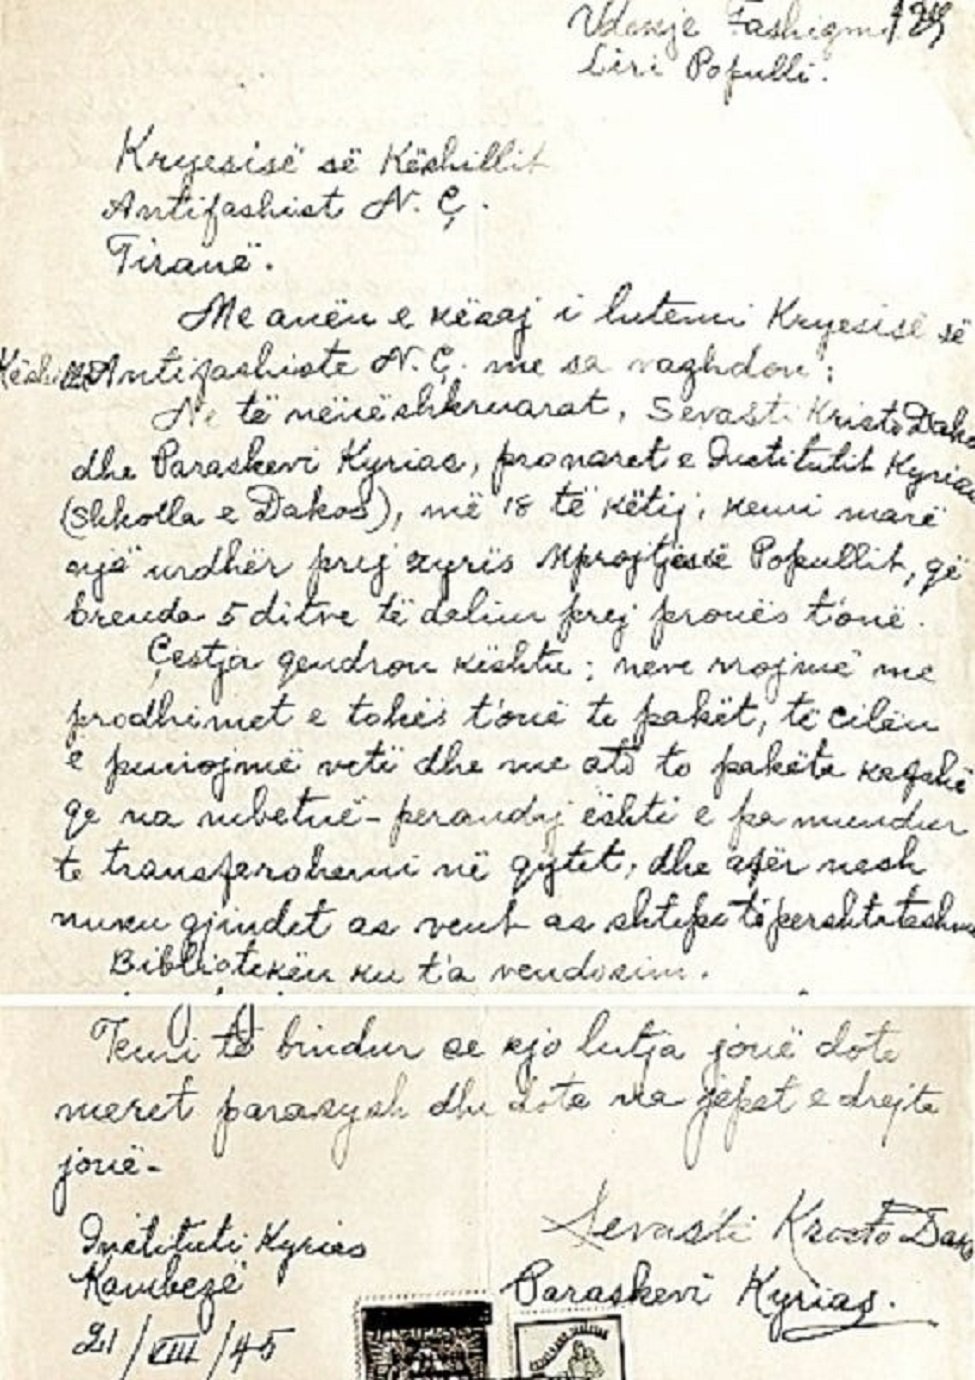 Vdekje Fashizmit
Liri Popullit.
Kryesisë së Këshillit
Antifashist N. Ç.
Tiranë.
Me anën e kësaj i lutemi Kryesisë së
Këshillit Antifashiste N. Ç. me sa vaghdon:
Ne të nënëshkruarat, Sevasti Kristo Dako
dhe Paraskevi Kyrias, pronaret e Institutit Kyrias
(Shkolla e Dakos), më 18 të këtij, kemi marë
një urdhër prej zyrës Mprojtjesë Popullit, që
brenda 5 ditve të dalim prej pronës t'onë.
Çestja qendron kështu; neve rrojmë me
prodhimet e tokës t'onë te pakët, të cilën
e punojmë vetë dhe me ato to pakëta
qe na mbetnë - perandaj është e pa mundur
te transferohemi në qytet, dhe afër nesh
nuku gjindet as vent as shtëpi të pershtateshme
Bibliotekën ku t'a vendosim.
Temi të bindur se kjo lutja jonë dote
meret parasysh dhe dota na jepet e drejta
jonë -
Instituti Kyrias
Kambezë
21/VIII/45
Sevasti Kristo Dako
Paraskevi Kyrias.